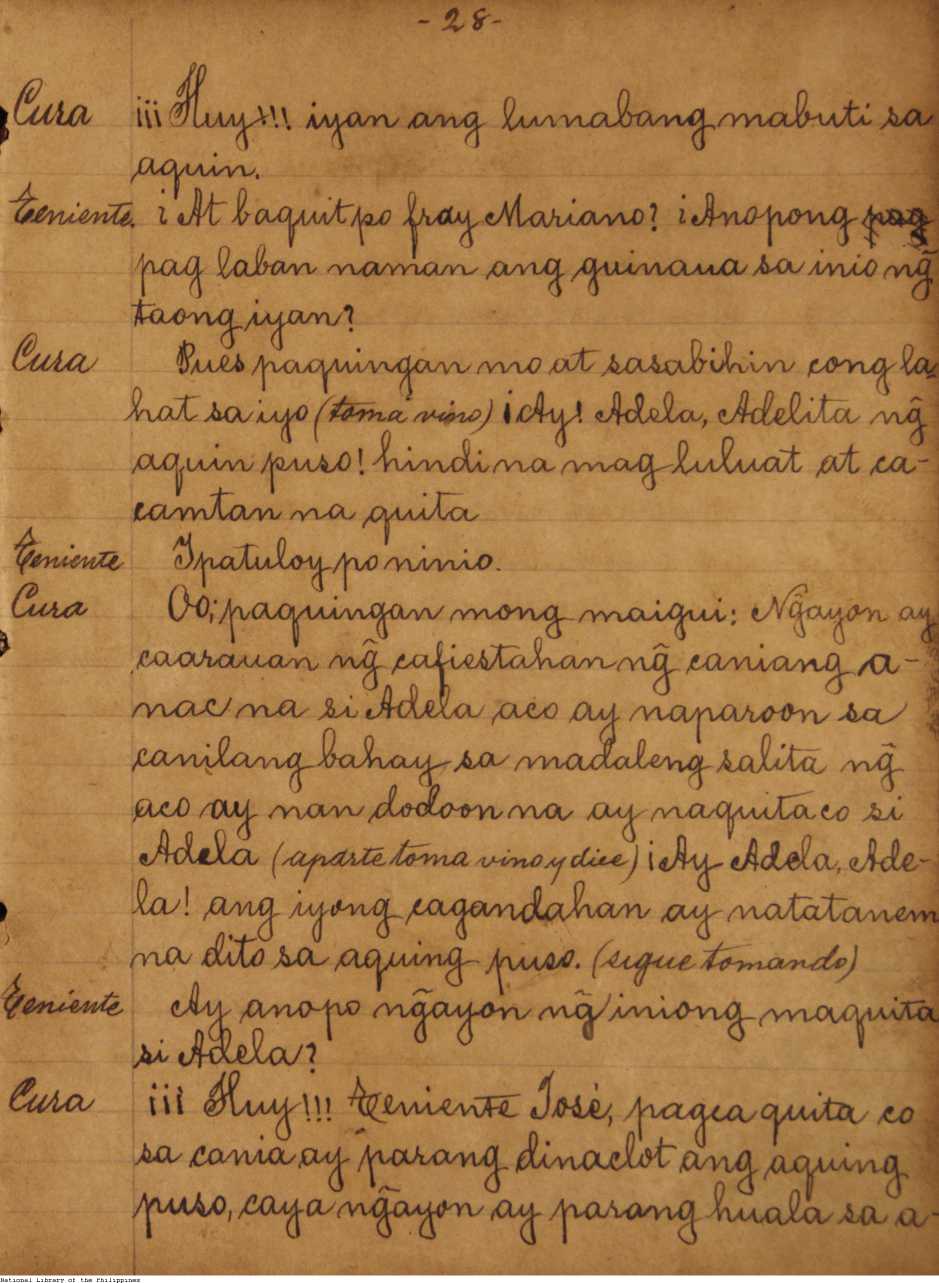 -28-
Cura ¡¡¡Huy!!! iyan ang lumabang mabuti sa
aquin.
Teniente. ¿At baquit po fray Mariano? ¿Ano pong pag
pag laban naman ang guinaua sa inio ng̃
taong iyan?
Cura Pues paquingan mo at sasabihin cong la-
hat sa iyo (toma vino) ¡Ay! Adela, Adelita ng̃
aquin puso! hindi na mag luluat at ca-
camtan na quita
Teniente Ipatuloy po ninio.
Cura Oo; paquingan mong maigui: Ng̃ayon ay
caarauan ng̃ cafiestahan ng̃ caniang a-
nac na si Adela aco ay naparoon sa
canilang bahay sa madaleng salita ng̃
aco ay nan dodoon na ay naquita co si
Adela (aparte toma vino y dice) ¡Ay Adela, Ade-
la! ang iyong cagandahan ay natatanem
na dito sa aquing puso. (sigue tomando)
Teniente Ay ano po ng̃ayon ng̃ iniong maquita
si Adela?
Cura ¡¡¡ Huy!!! Teniente José, pagca quita co
sa cania ay parang dinaclot ang aquing
puso, caya ng̃ayon ay parang huala sa a-
National Library of the Philippines